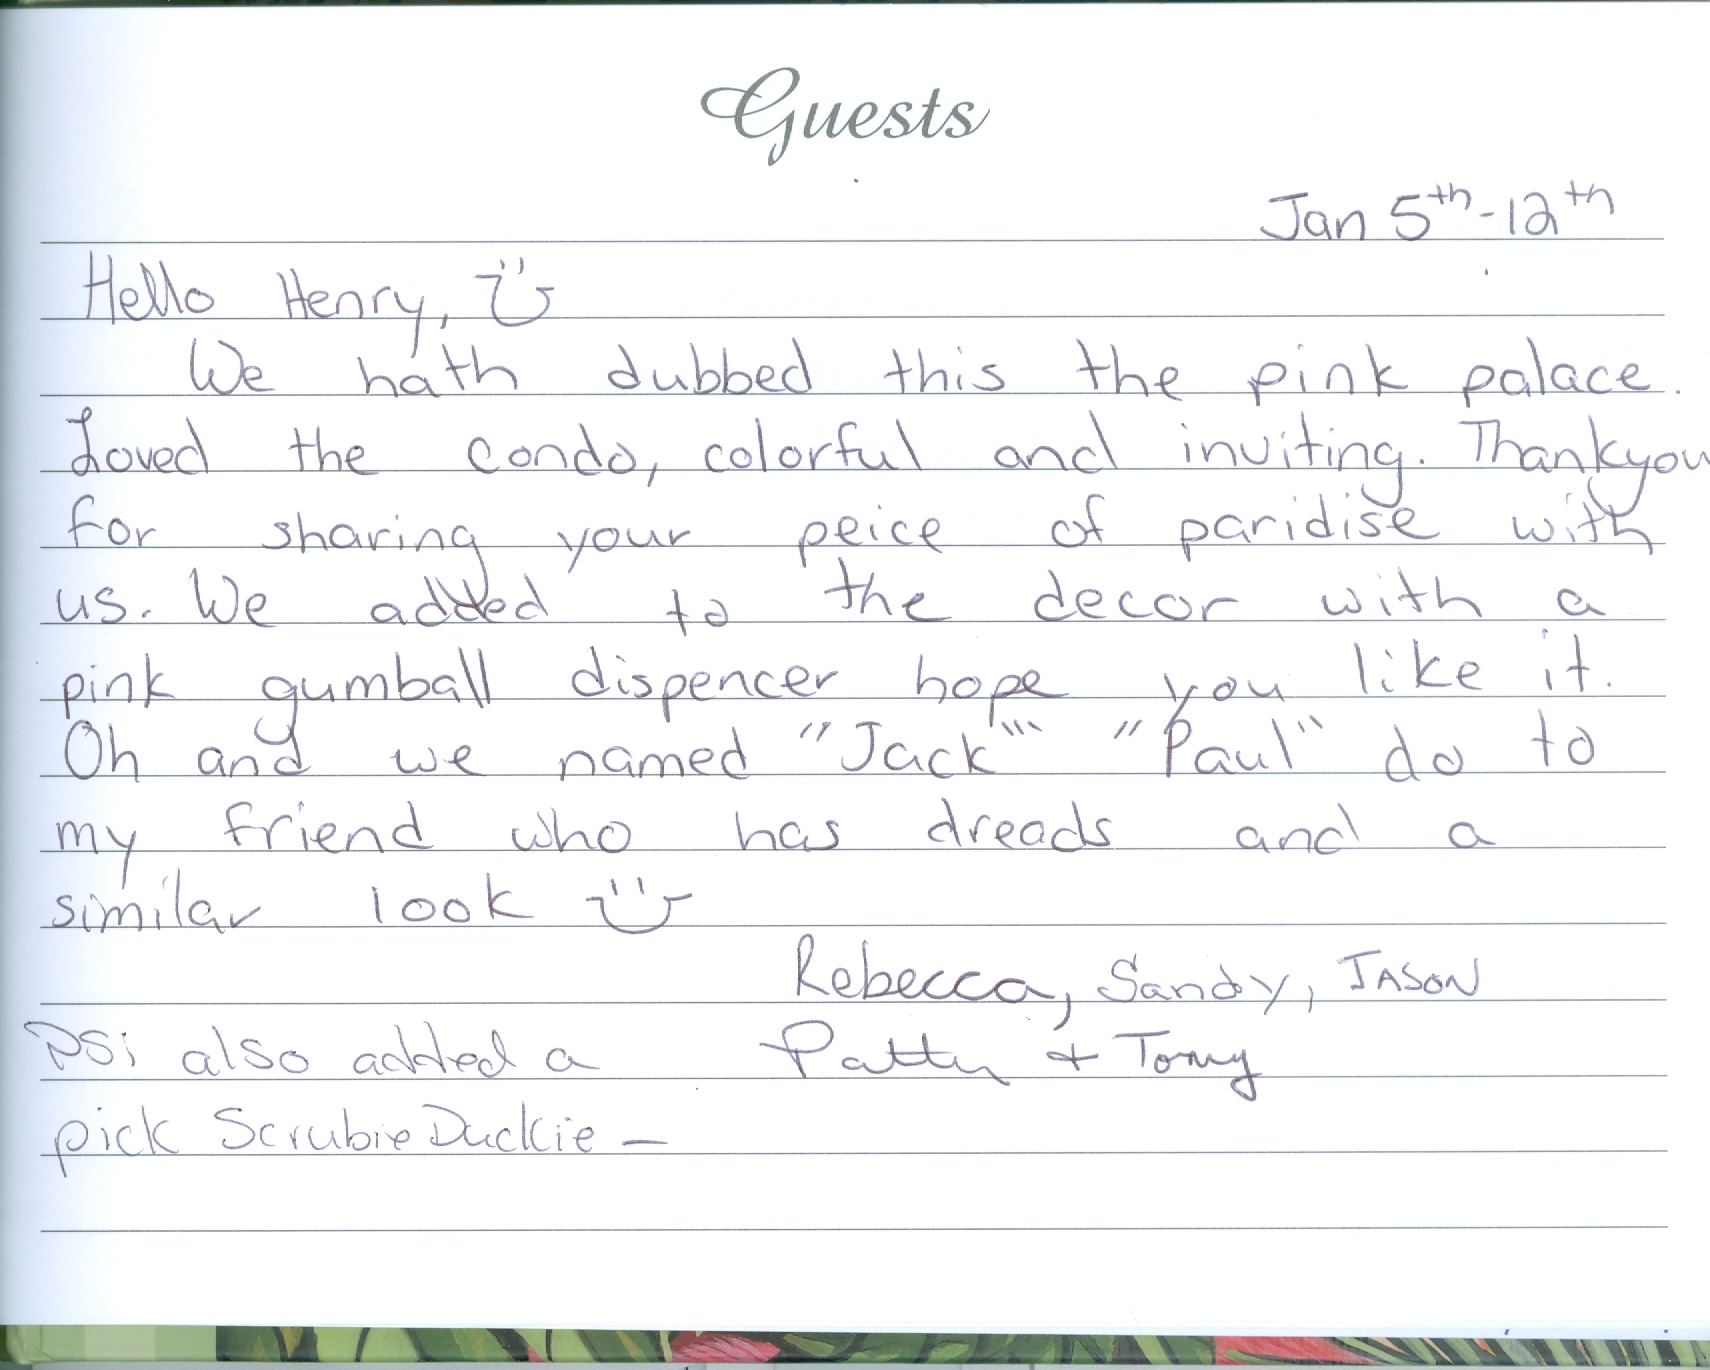 Guests
Jan 5th-12th
Hello Henry,
We hath dubbed this the pink palace.
Loved the condo, colorful and inviting. Thankyou
for sharing your peice of paridise with
us. We added to the decor with a
pink gumball dispencer hope you like it.
Oh and we named "Jack"' "Paul" do to
my friend who has dreads and a
similar look
Rebecca, Sandy, JASON
PS; also added a Patty + Tomy
pick Scrubie Duckie —